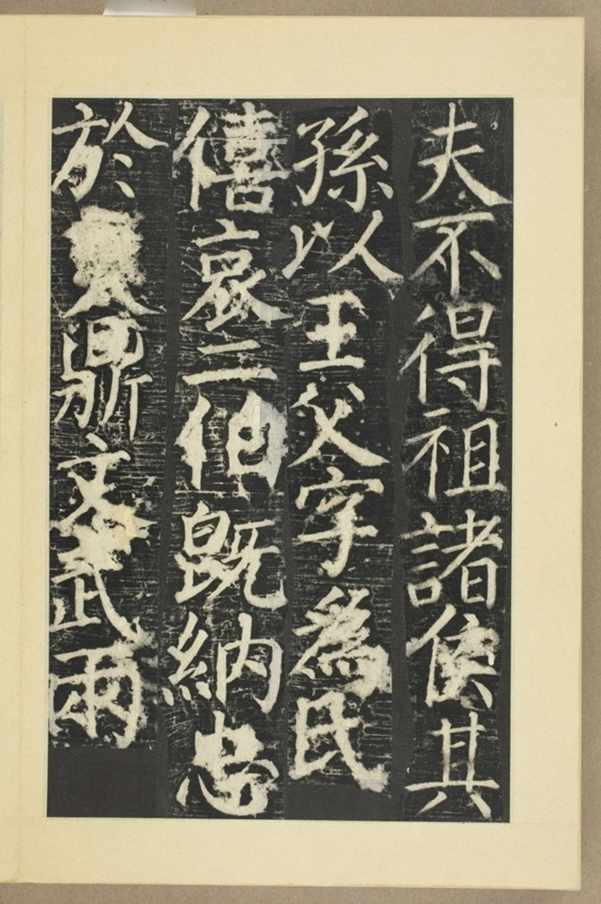 夫不得祖諸侯其
孫以王父字爲氏
僖哀二伯既納忠
於鼎文武兩